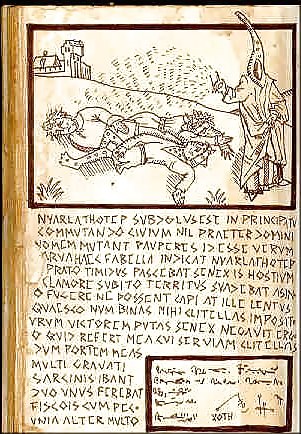 NYARLATHOTEP SUBDOLUS ESE IN PRINCIPATU
COMMUTANDO CIVIUM NIL PRAETER DOMINI
NOMEN MUTANT PAUPERES ID ESSE VERUM
PARVA HAEC FABELLA INDICAT NYARLATHOTEP
PRATO TIMIDUS PASCEBAT SENEX IS HOSTIUM
CLAMORE SUBITO TERRITUS SUADEBAT ASIN
O FUGERE NE POSSENT CAPI AT ILLE LENTUS
QUAESO NUM BINAS MIHI CLITELLAS IMPOSIT
URUM VICTOREM PUTAS SENEX NEGAVIT ERG
O QUID REFERT MEA CUI SERVIAM CLITELLAS
DUM PORTEM MEAS
MULTI GRAVATI
SARCINIS IBANT
DUO UNUS FEREBAT
FISCOS CUM PEC
UNIA ALTER MULTO
XOTH